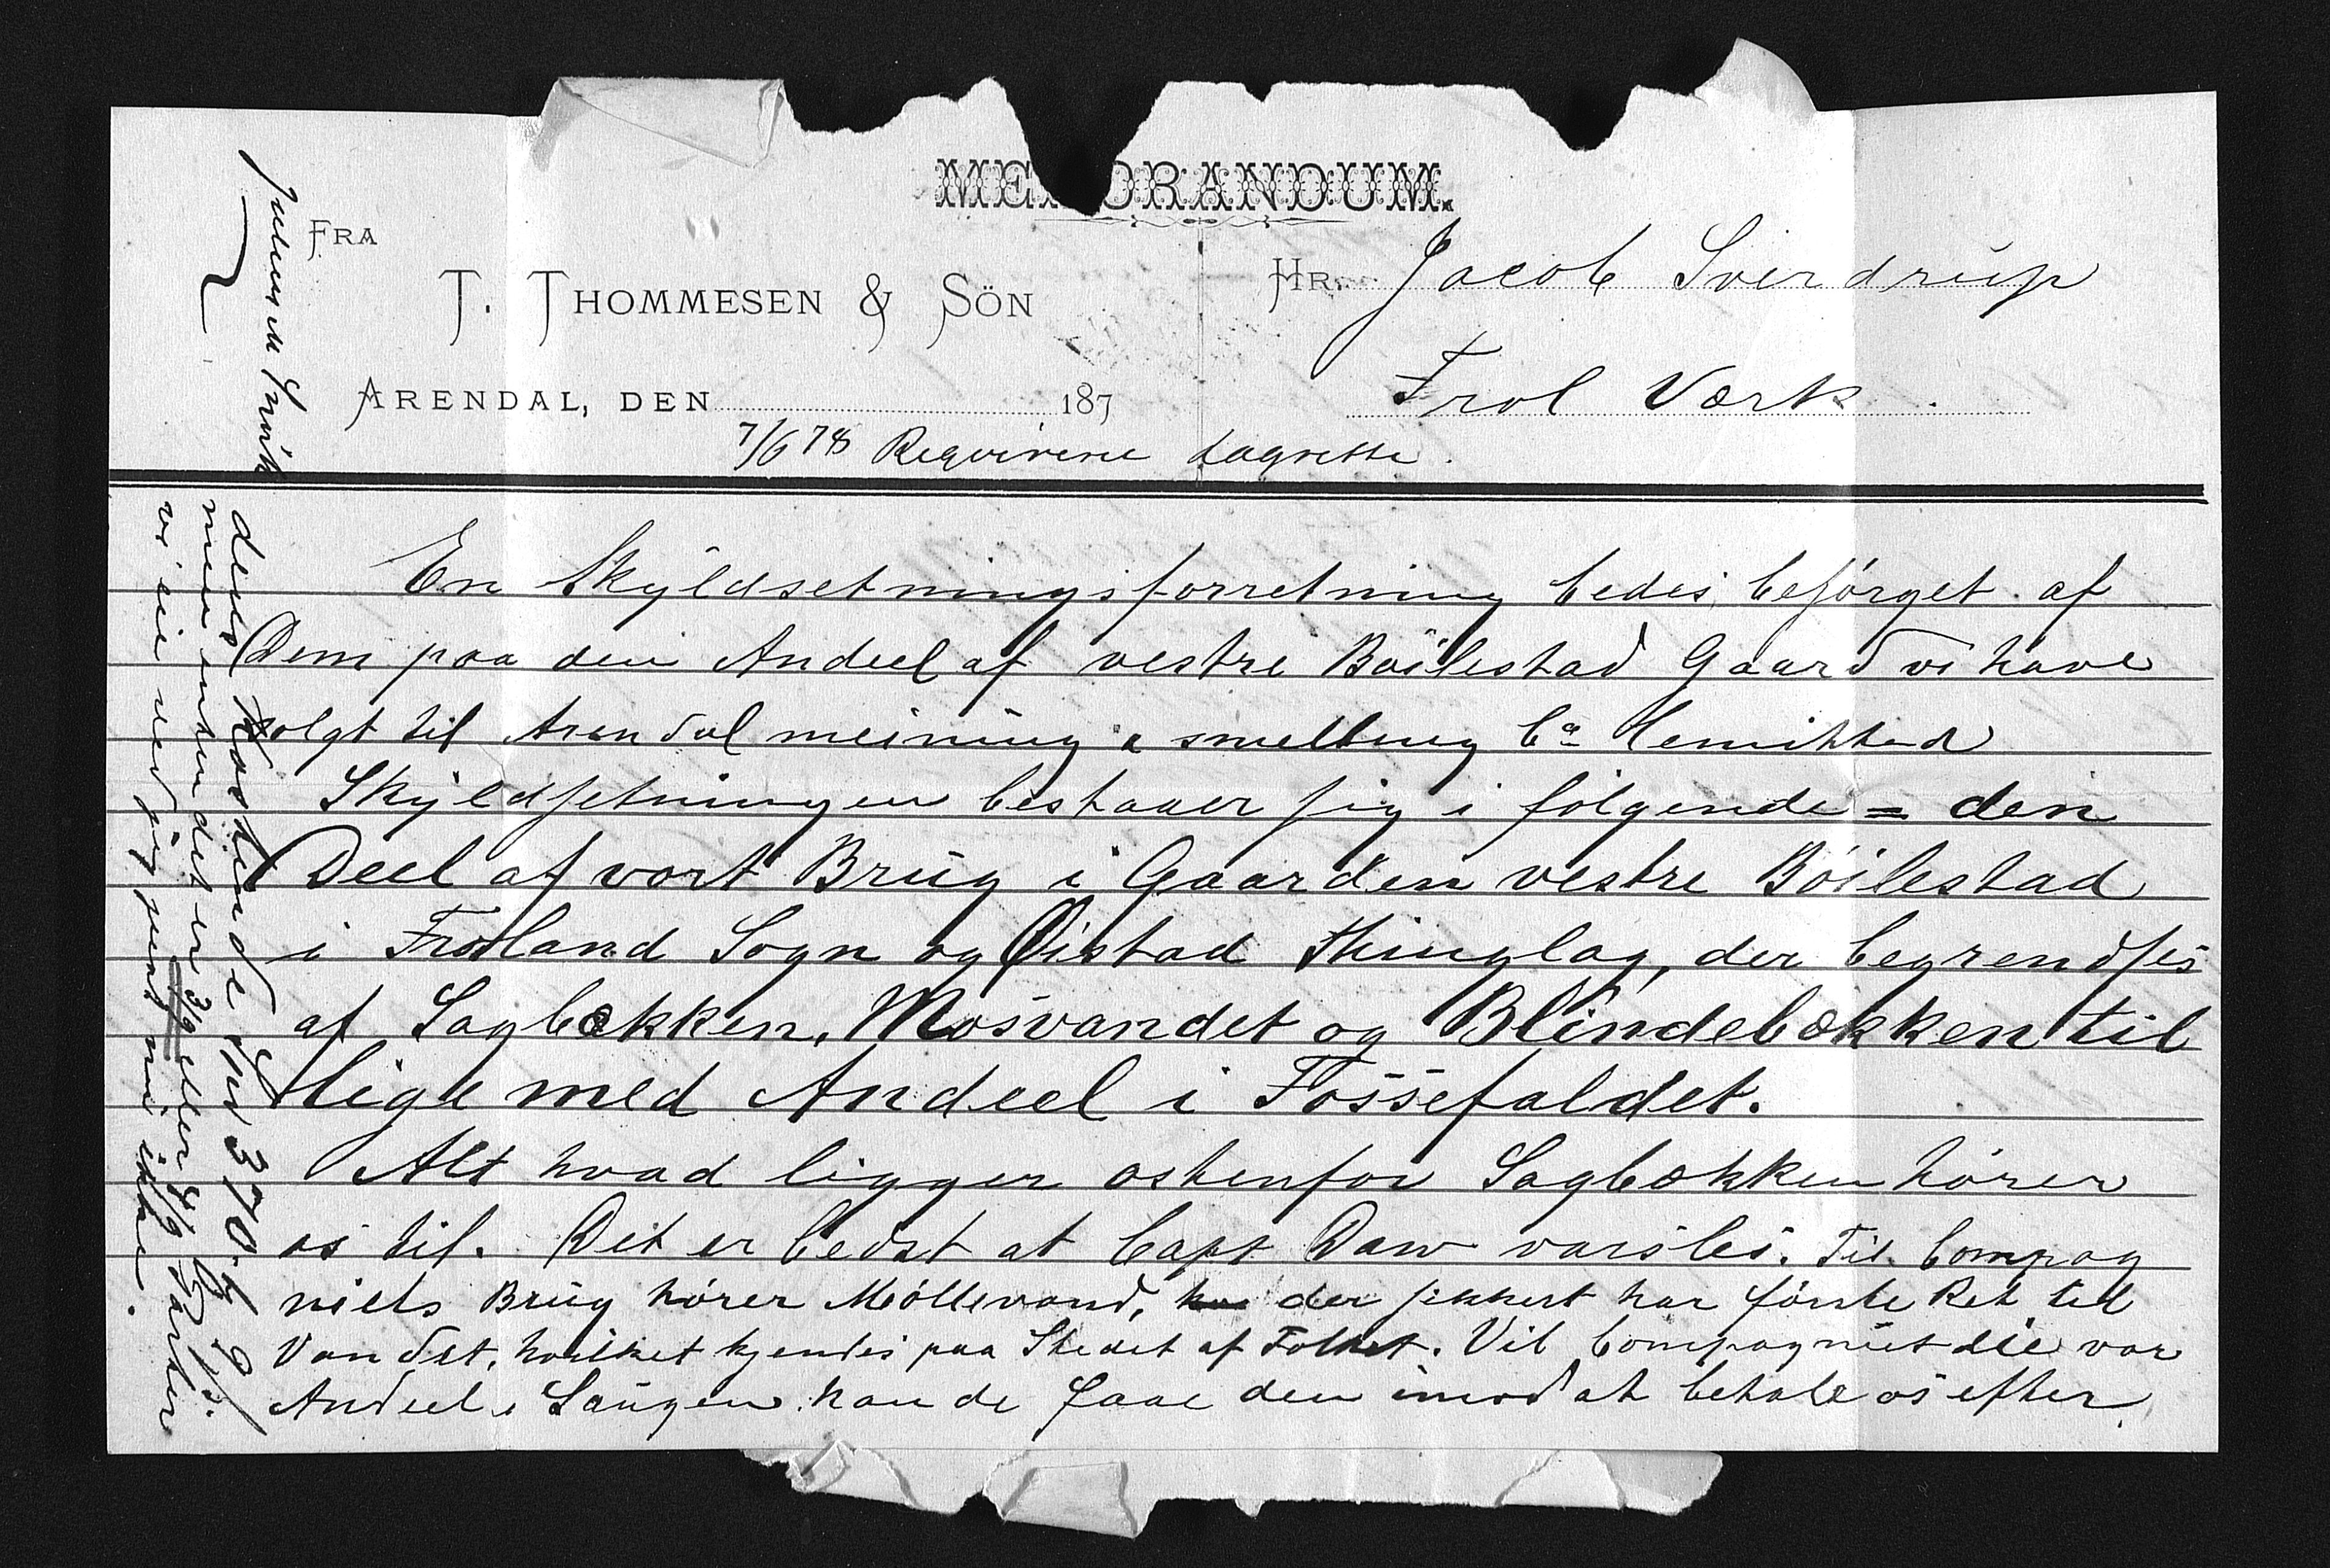 MEMORANDUM.
FRA
T. THOMMESEN & SÖN
ARENDAL, DEN 187
HR. Jacob Sverdrup
Frol Værk
7/6 78 Reqvirere Lagrette.
En Skyldsetningsforretning bedes besørget af
Dem paa den Andeel af vestre Bøilestad Gaard vi have
solgt til Arendal meining & smelting Co
Skyldsetningen bestaaer sig i følgende = den
Deel af vort Brüg i Gaarden vestre Bøilestad
i Froland Sogn og Øistad Thinglag, der begrendses
af Sagbækken, Mosvandet og Blindebækken til
lige med Andeel i Fossefaldet.
Alt hvad ligger østenfor Sagbækken hører
os til. Det er bedst at Capt Daw varsles. Til Compag
niets Brüg hører Møllevand, der sikkert har første Ret til
Vandet, hvilket kjendes paa Stedet af Folket. Vil Compagniet eie vor
Andeel i Saugen kan de faae den imod at betale os efter
deres Kostende Kr 370. b 9 ß.
men enten det er 3/9 eller 4/9 Parter
vi eie ved jeg just nu ikke.